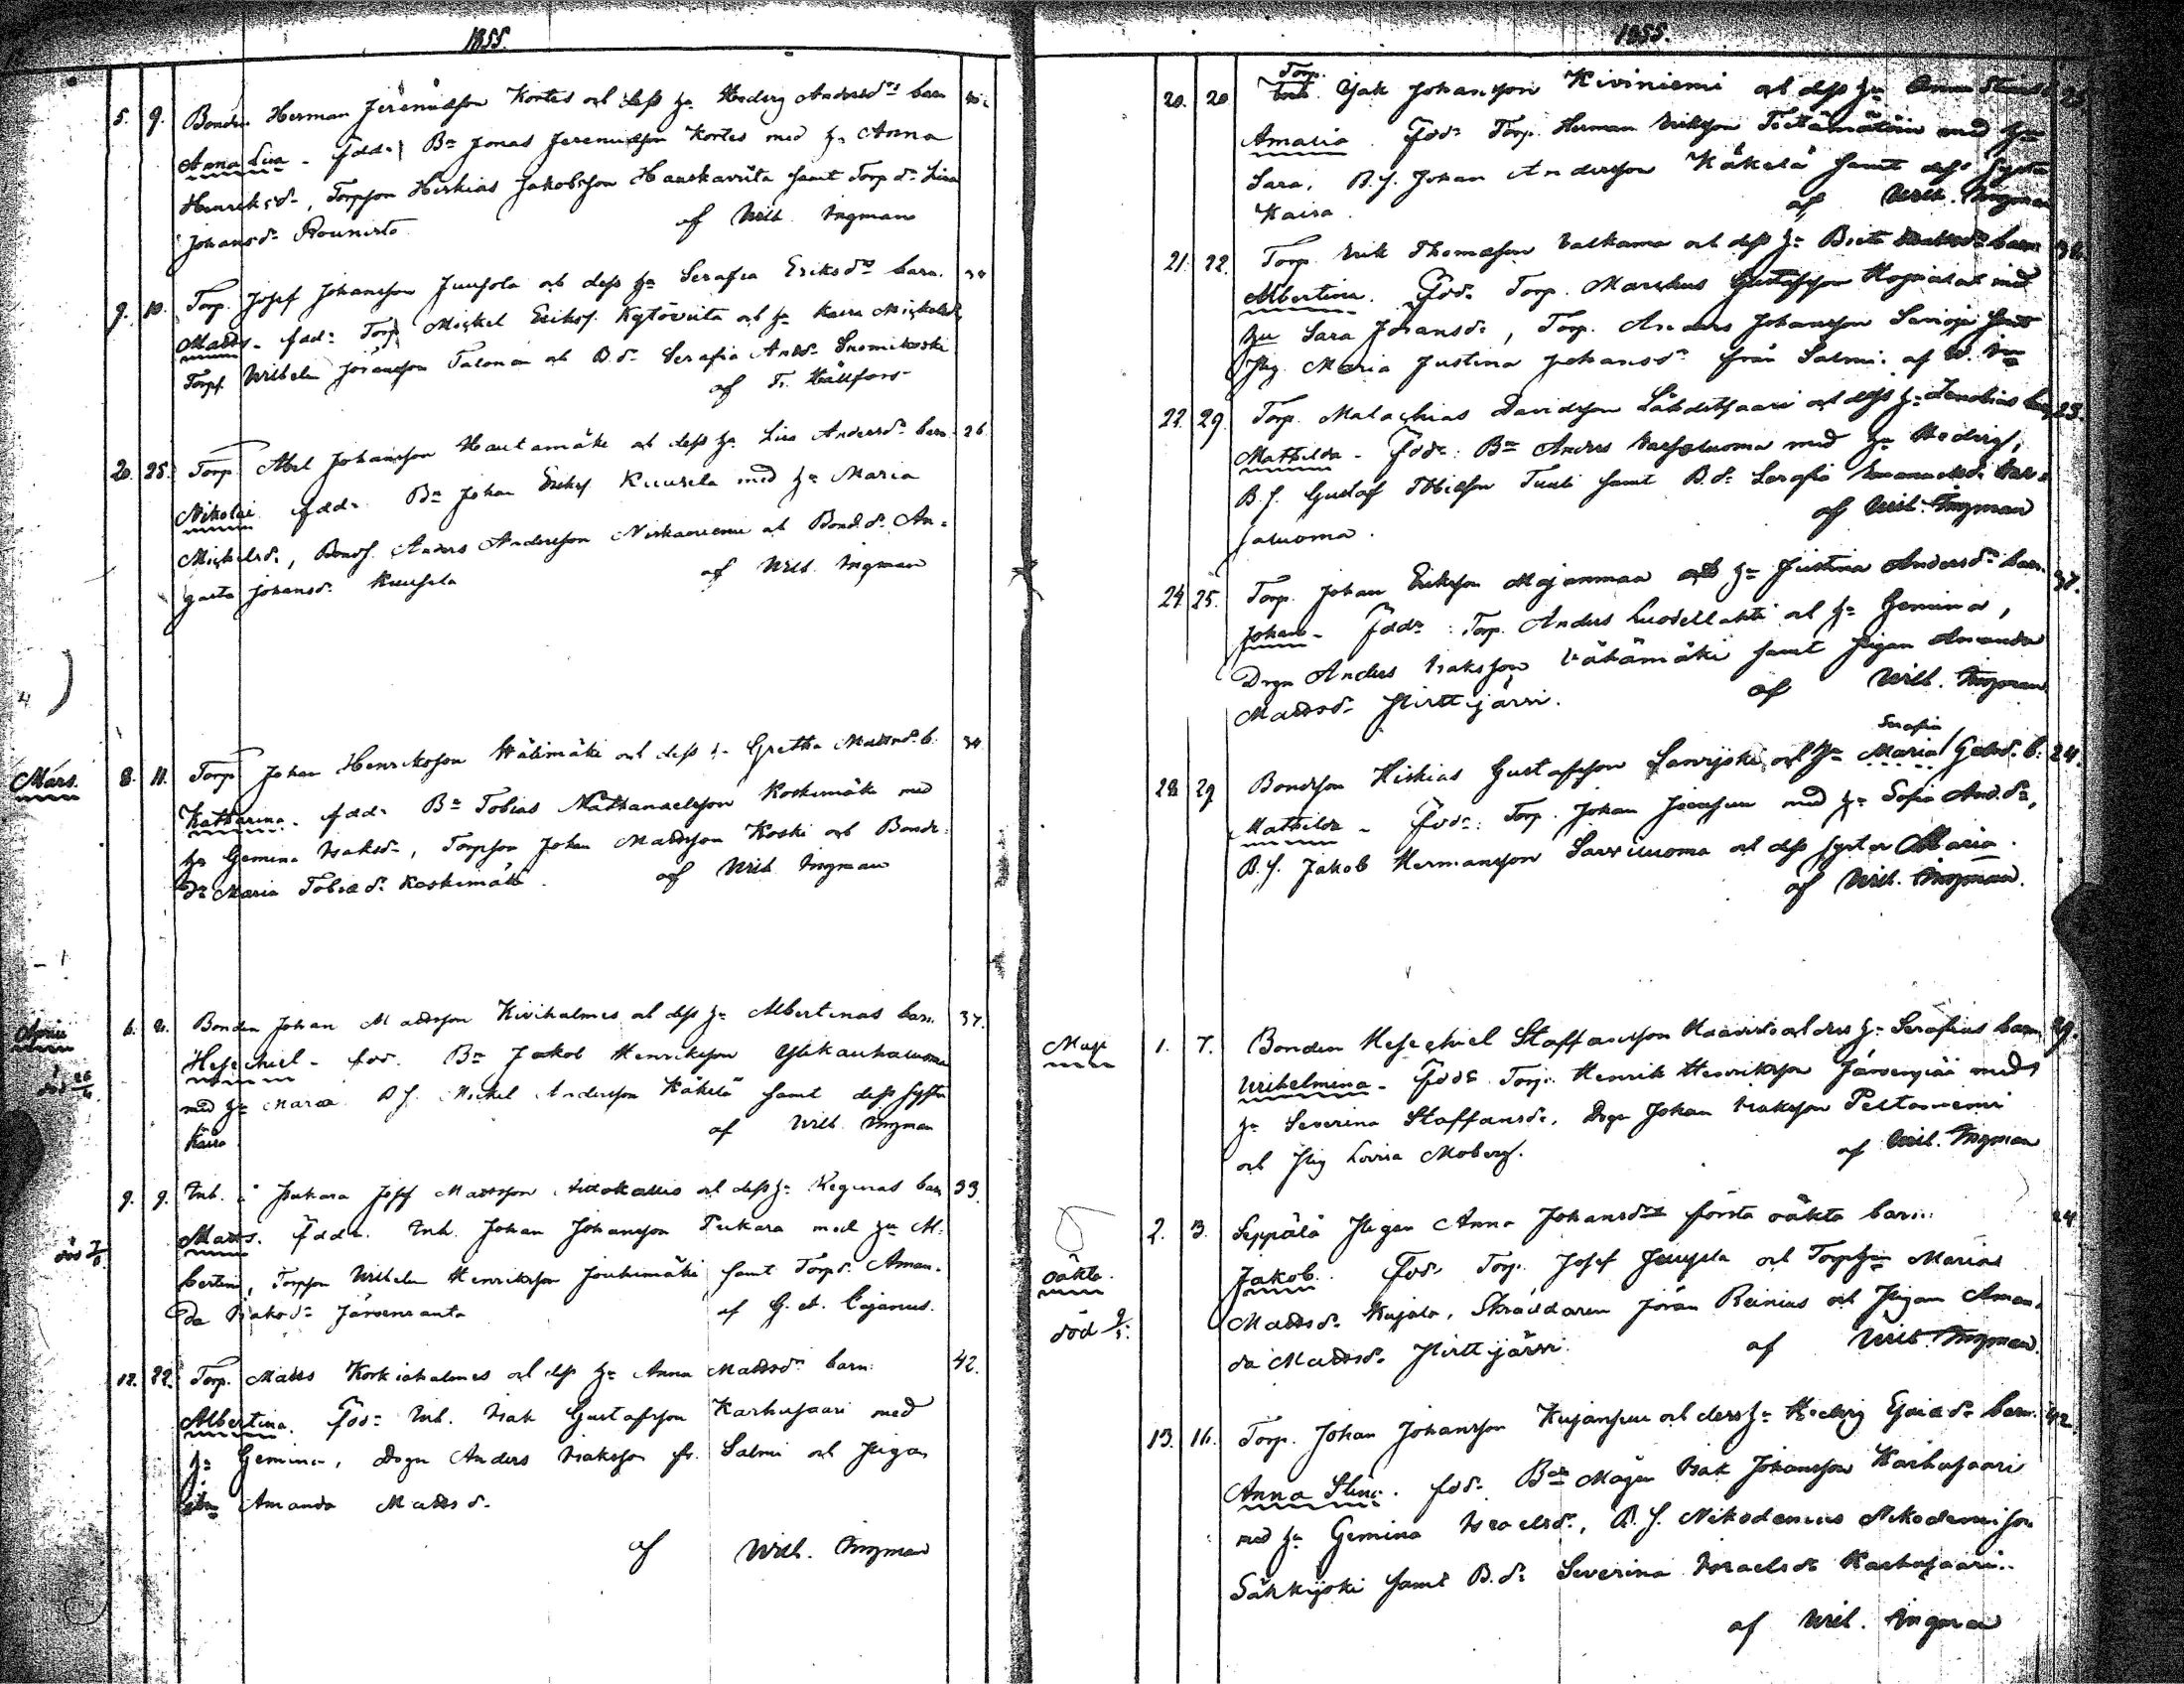 1855.
5. 9. Bonden Herman Jeremiasson Kortes och dess hu Hedvig Andersdrs barn
Anna Lisa - fadd: Bn Jonas Jeremiasson Kortes med hu Anna
Henriksdr, Torpson Hiskias Jakobsson Hauskaviita samt Torp dr Lisa
Johansdr
af Wilh. Ingman
9. 10. Torp. Josef Johansson Juusola och dess hu Serafia Eriksdrs barn. 34
Matts - fadd: Torp Mickel Erikss. Kytöviita och hu Kaisa Mickelsdr
Torps. Wilhelm Johansson Talonen och B.dr Serafia Andr Suomikoski
af F. Hällfors
20. 25. Torp Abel Johansson Hautamäki och dess hu Lisa Andersdr barn 26
Nikolai fadd: Bn Johan Eriks Kuusela med hu Maria
Mickelsdr, Bonds. Anders Andersson Niskaniemi och Bond.dr Au-
gusta Johansdr Kuusela af Wilh. Ingman
Mars. 8. 11. Torp Johan Henriksson Wälimäki och dess hu Gretha Mattsdr b. 34
Katharina. fadd: Bn Tobias Nathanaelsson Koskimäki med
hu Gemina Isaksdr, Torpson Johan Mattsson Koski och Bonde
dr Maria Tobiasdr Koskimäki. af Wilh Ingman
April 6. 8. Bonden Johan Mattsson Kiviholmes och dess hu Albertinas barn. 37.
Hesechiel - fad. Bn Jakob Henriksson Ylikauhaluoma
död 26/4 med hu Maria B.S. Mickel Andersson Käkelä samt dess syster
Kaisa af Wilh Ingman
9. 9. Inh. å Peukara Josef Mattsson och dess hu Reginas barn 33.
död 7/6 Matts. fadd: Inh. Johan Johansson Peukara med hu Al-
bertina, Torpson Wilhelm Henriksson Jouhimäki samt Torpdr Aman-
da Isaksdr Järvenranta af G. A. Cajanus.
12. 22. Torp. Matts Korkiaholmes och dess hu Anna Mattsdr barn. 42.
Albertina. fadr Inh. Isak Gustafsson Karhusaari med
hu Gemina, Drgn Anders Isaksson fr. Salmi och Pigan
Amanda Mattsdr.
af Wilh. Ingman
1855.
20. 20 Torp. Isak Johansson Kiviniemi och dess hu Anna
Amalia. Fadr Torp. Herman Eriksson med hu
Sara, B.S. Johan Andersson Käkelä samt dess syster
Kaisa. af Wilh. Ingman
21. 22. Torp. Erik Thomasson Valkama och dess hu Brita barn 36.
Albertina. Fadr Torp. Markus Gustafsson med
hu Sara Johansdr, Torp. Anders Johansson samt
Pig. Maria Justina Johansdr från Salmi. af W. In
22. 29. Torp. Malachias Davidsson Lähdetsaari och dess hu Zenobias barn 23.
Mathilda - Fadr: Bn Anders Varsaluoma med hu Hedvig,
B.S. Gustaf Tobiasson Tuuli samt B.dr Serafia Emanuelsdr Var-
saluoma. af Wilh. Ingman
24 25. Torp. Johan Eriksson Majanmaa och hu Justina Andersdr barn. 37.
Johan - Fadr: Torp. Anders Luodeslahti och hu Gemina,
Drgn Anders Isaksson Vähämäki samt Pigan Amanda
Mattsdr Pirttijärvi. af Wilh. Ingman
Serafia
28 29 Bondeson Hiskias Gustafsson och hu Maria Gabrdr. b. 24.
Mathilda - Fadr: Torp. Johan med hu Sofia And.dr,
B.S. Jakob Hermansson Sarviluoma och dess syster Maria.
af Wilh. Ingman.
Maji 1. 7. Bonden Hesechiel Staffansson Haavisto och dess hu Serafias barn. 29.
Wilhelmina - Fadr Torp. Henrik Henriksson Järvenpää med
hu Severina Staffansdr, Drgn Johan Isaksson Peltoniemi
och Pig Lovisa Moberg. af Wilh. Ingman
2. 3. Seppälä Pigan Anna Johansdrs första oäkta barn. 24
oäkta. Jakob. Fadr Torp. Josef Juusola och Torphu Maria
död 9/5. Mattsdr Kujala, Skräddaren Jöran Reinius och Pigan Aman-
da Mattsdr Pirttijärvi. af Wilh. Ingman.
13. 16. Torp. Johan Johansson Kujanpuu och dess hu Hedvig Esaiædr barn. 42
Anna Stina. fadr. Bde Mågen Isak Johansson Karhusaari
med hu Gemina Israelsdr., B.S. Nikodemus Nikodemisson
Särkijoki samt B.dr Severina Israelsdr Karhusaari.
af Wilh. Ingman